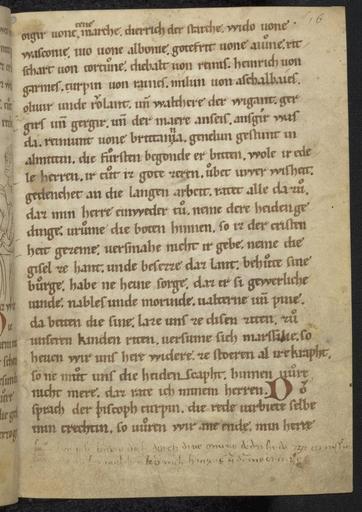 16
oigir uone tenemarche. dierrich der starche. wido uone
wasconie. iuo uone albonie. gotefrit uone aiune. rit
schart uon tortune. diebalt uon remis. heinrich uon
garmes. turpin uon raines. milun uon aschalbaies.
oliuir unde rolant. uñ walthere der wigant. ger
girs uñ gergir. uñ der maere anseis. ansgir was
da. reimunt uone brittania. genelun gestunt in
almitten. die fursten begonde er bitten. wole ir ede
le herren. ir cut ir gote zeren. ubet iuwer wisheit.
gedenchet an die langen arbeit. ratet alle da zu.
daz min herre eintweder tu. neme dere heidenge
dinge. urume die boten hinnen. so iz der cristen
heit gezeme. uersmahe nicht ir gebe. neme die
gisel ze hant. unde besezze daz lant. behute sine
burge. habe ne heine sorge. daz er si gewerliche
uinde. nables unde morinde. ualterne uñ pine.
da beiten die sine. laze uns ze disen ziten. zu
unseren kinden riten. uersume sich marsilie. so
heuen wir uns here widere. ze stoeren al ire krapht.
so ne mut uns die heiden scapht. hinnen uure
nicht mere. daz rate ich minem herren. Do
sprach der biscoph turpin. die rede uurbiete selbe
min trechtin. so uuren wir ane ende. min herre